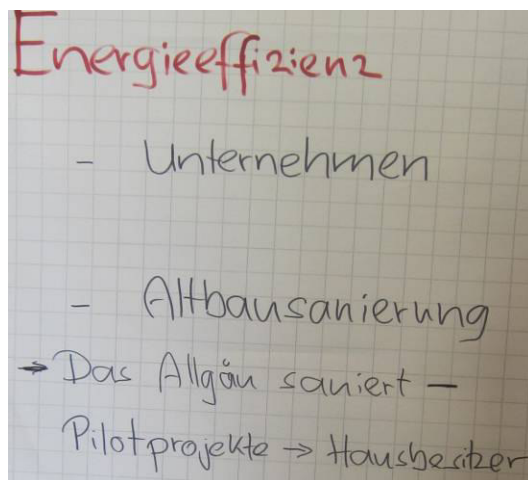 Energieeffizienz
- Unternehmen
- Altbausanierung
→ Das Allgäu saniert –
Pilotprojekte → Hausbesitzer